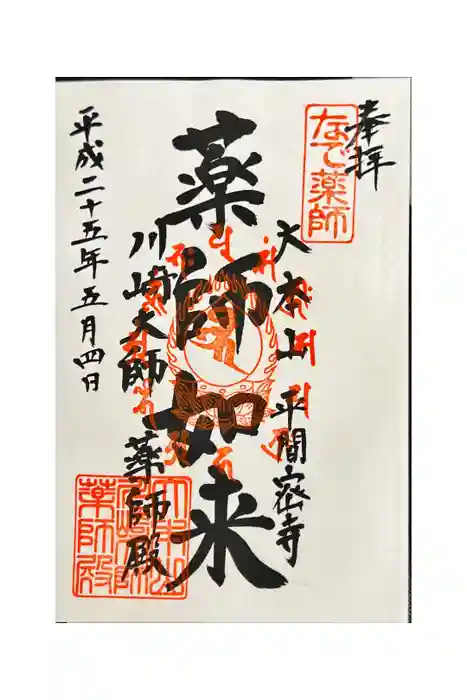 奉拝
なで薬師
大本山 平間密寺
薬師如来
川崎大師 薬師殿
平成二十五年五月四日
大本山
川崎大師
薬師殿